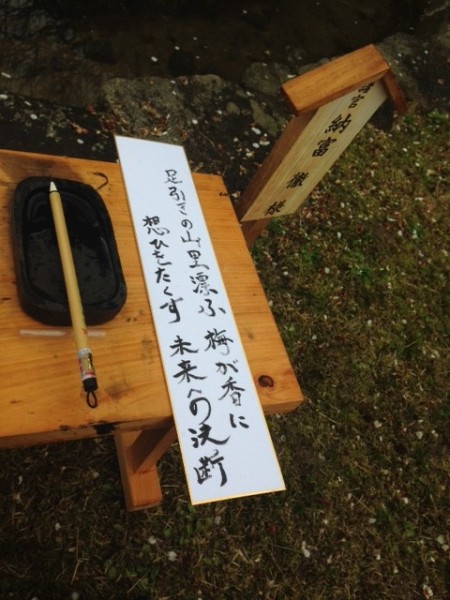 足引きの山里漂ふ梅が香に
想ひをたくす未来への決断
納富
様